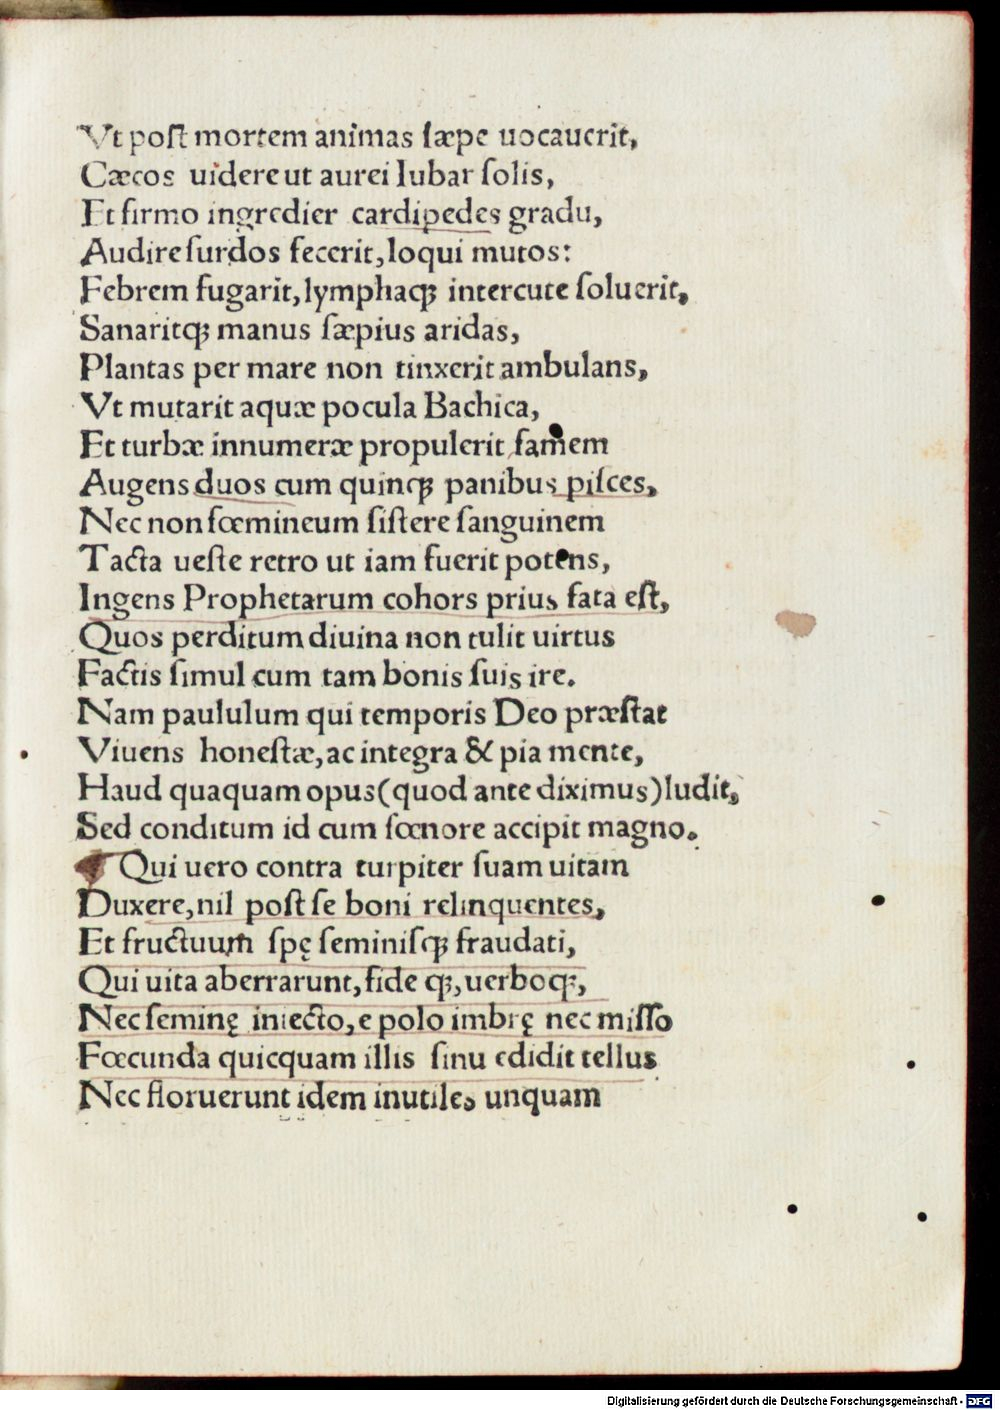 Vt poſt mortem animas ſæpe uocauerit,
Cæcos uidere ut aurei Iubar ſolis,
Et firmo ingredier cardipedes gradu,
Audire ſurdos fecerit, loqui mutos:
Febrem fugarit, lymphaqꝫ intercute ſoluerit,
Sanaritqꝫ manus ſæpius aridas,
Plantas per mare non tinxerit ambulans,
Vt mutarit aquæ pocula Bachica,
Et turbæ innumeræ propulerit famem
Augens duos cum quinqꝫ panibus piſces,
Nec non fœmineum ſiſtere ſanguinem
Tacta ueſte retro ut iam fuerit potens,
Ingens Prophetarum cohors prius fata eſt,
Quos perditum diuina non tulit uirtus
Factis ſimul cum tam bonis ſuis ire.
Nam paululum qui temporis Deo præſtat
Viuens honeſtæ, ac integra & pia mente,
Haud quaquam opus (quod ante diximus) ludit,
Sed conditum id cum fœnore accipit magno.
Qui uero contra turpiter ſuam uitam
Duxere, nil poſt ſe boni relinquentes,
Et fructuum ſpę ſeminiſqꝫ fraudati,
Qui uita aberrarunt, fide qꝫ, uerboqꝫ,
Nec ſeminę iniecto, e polo imbrę nec miſſo
Fœcunda quicquam illis ſinu edidit tellus
Nec floruerunt idem inutiles unquam
Digitalisierung gefördert durch die Deutsche Forschungsgemeinschaft - DFG